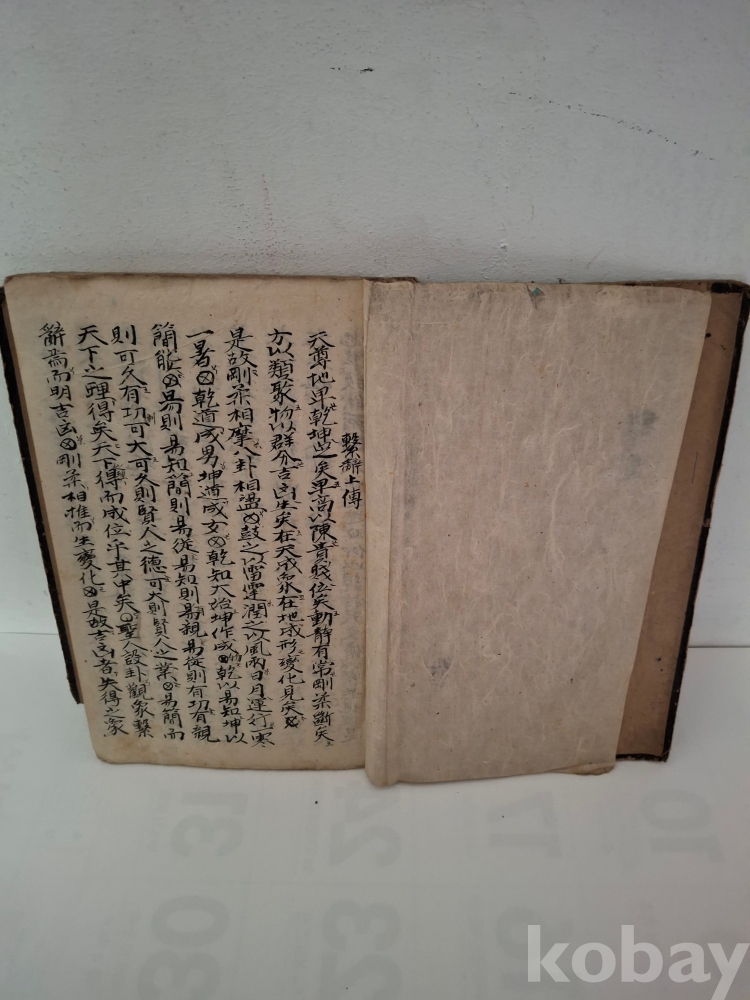 繫辭上傳
天尊地卑乾坤㝎矣卑高以陳貴賤位矣動静有常剛柔斷矣
方以類聚物以群分吉凶生矣在天成象在地成形變化見矣
是故剛柔相摩八卦相盪鼓之以雷霆潤之以風雨日月運行一寒
一暑乾道成男坤道成女乾知大始坤作成物乾以易知坤以
簡能易則易知簡則易從易知則易親易從則有功有親
則可久有功可大可久則賢人之德可大則賢人之業易簡而
天下之理得矣天下得而成位乎其中矣聖人設卦觀象繫
辭焉而明吉凶剛柔相推而生變化是故吉凶者失得之象
31
24
17
10
30
23
kobay